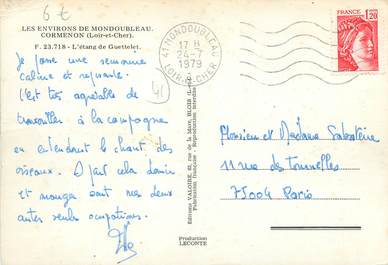 6 €
LES ENVIRONS DE MONDOUBLEAU
CORMENON (Loir-et-Cher).
F. 23.718 - L'étang de Guettelet
Je passe une semaine
calme et reposante.
C'est très agréable de
travailler à la campagne
en entendant le chant des
oiseaux. A part cela dormir
et manger sont mes deux
autres seules occupations.
41
41 MONDOUBLEAU
17 H
24-7
1979
LOIR-ET-CHER
Editions VALOIRE, rue de la Mare, BLOIS (L.-et-C.)
Fabrication française - Reproduction interdite
Production
LECONTE
FRANCE
1,20
Monsieur et Madame Sabatière
11 rue des Tournelles
75004 Paris